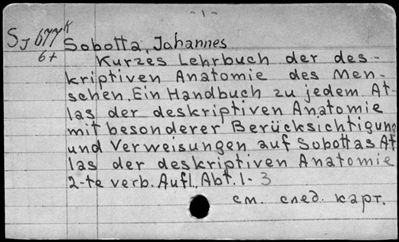 - 1 -
Sj 677K
6+
Sobotta, Johannes
Kurzes Lehrbuch der des-
kriptiven Anatomie des Men-
schen. Ein Handbuch zu jedem At-
las der deskriptiven Anatomie
mit besonderer Berücksichtigung
und Verweisungen auf Sobottas At
las der deskriptiven Anatomie
2-te verb. Aufl. Abt. 1-3
см. след. карт.